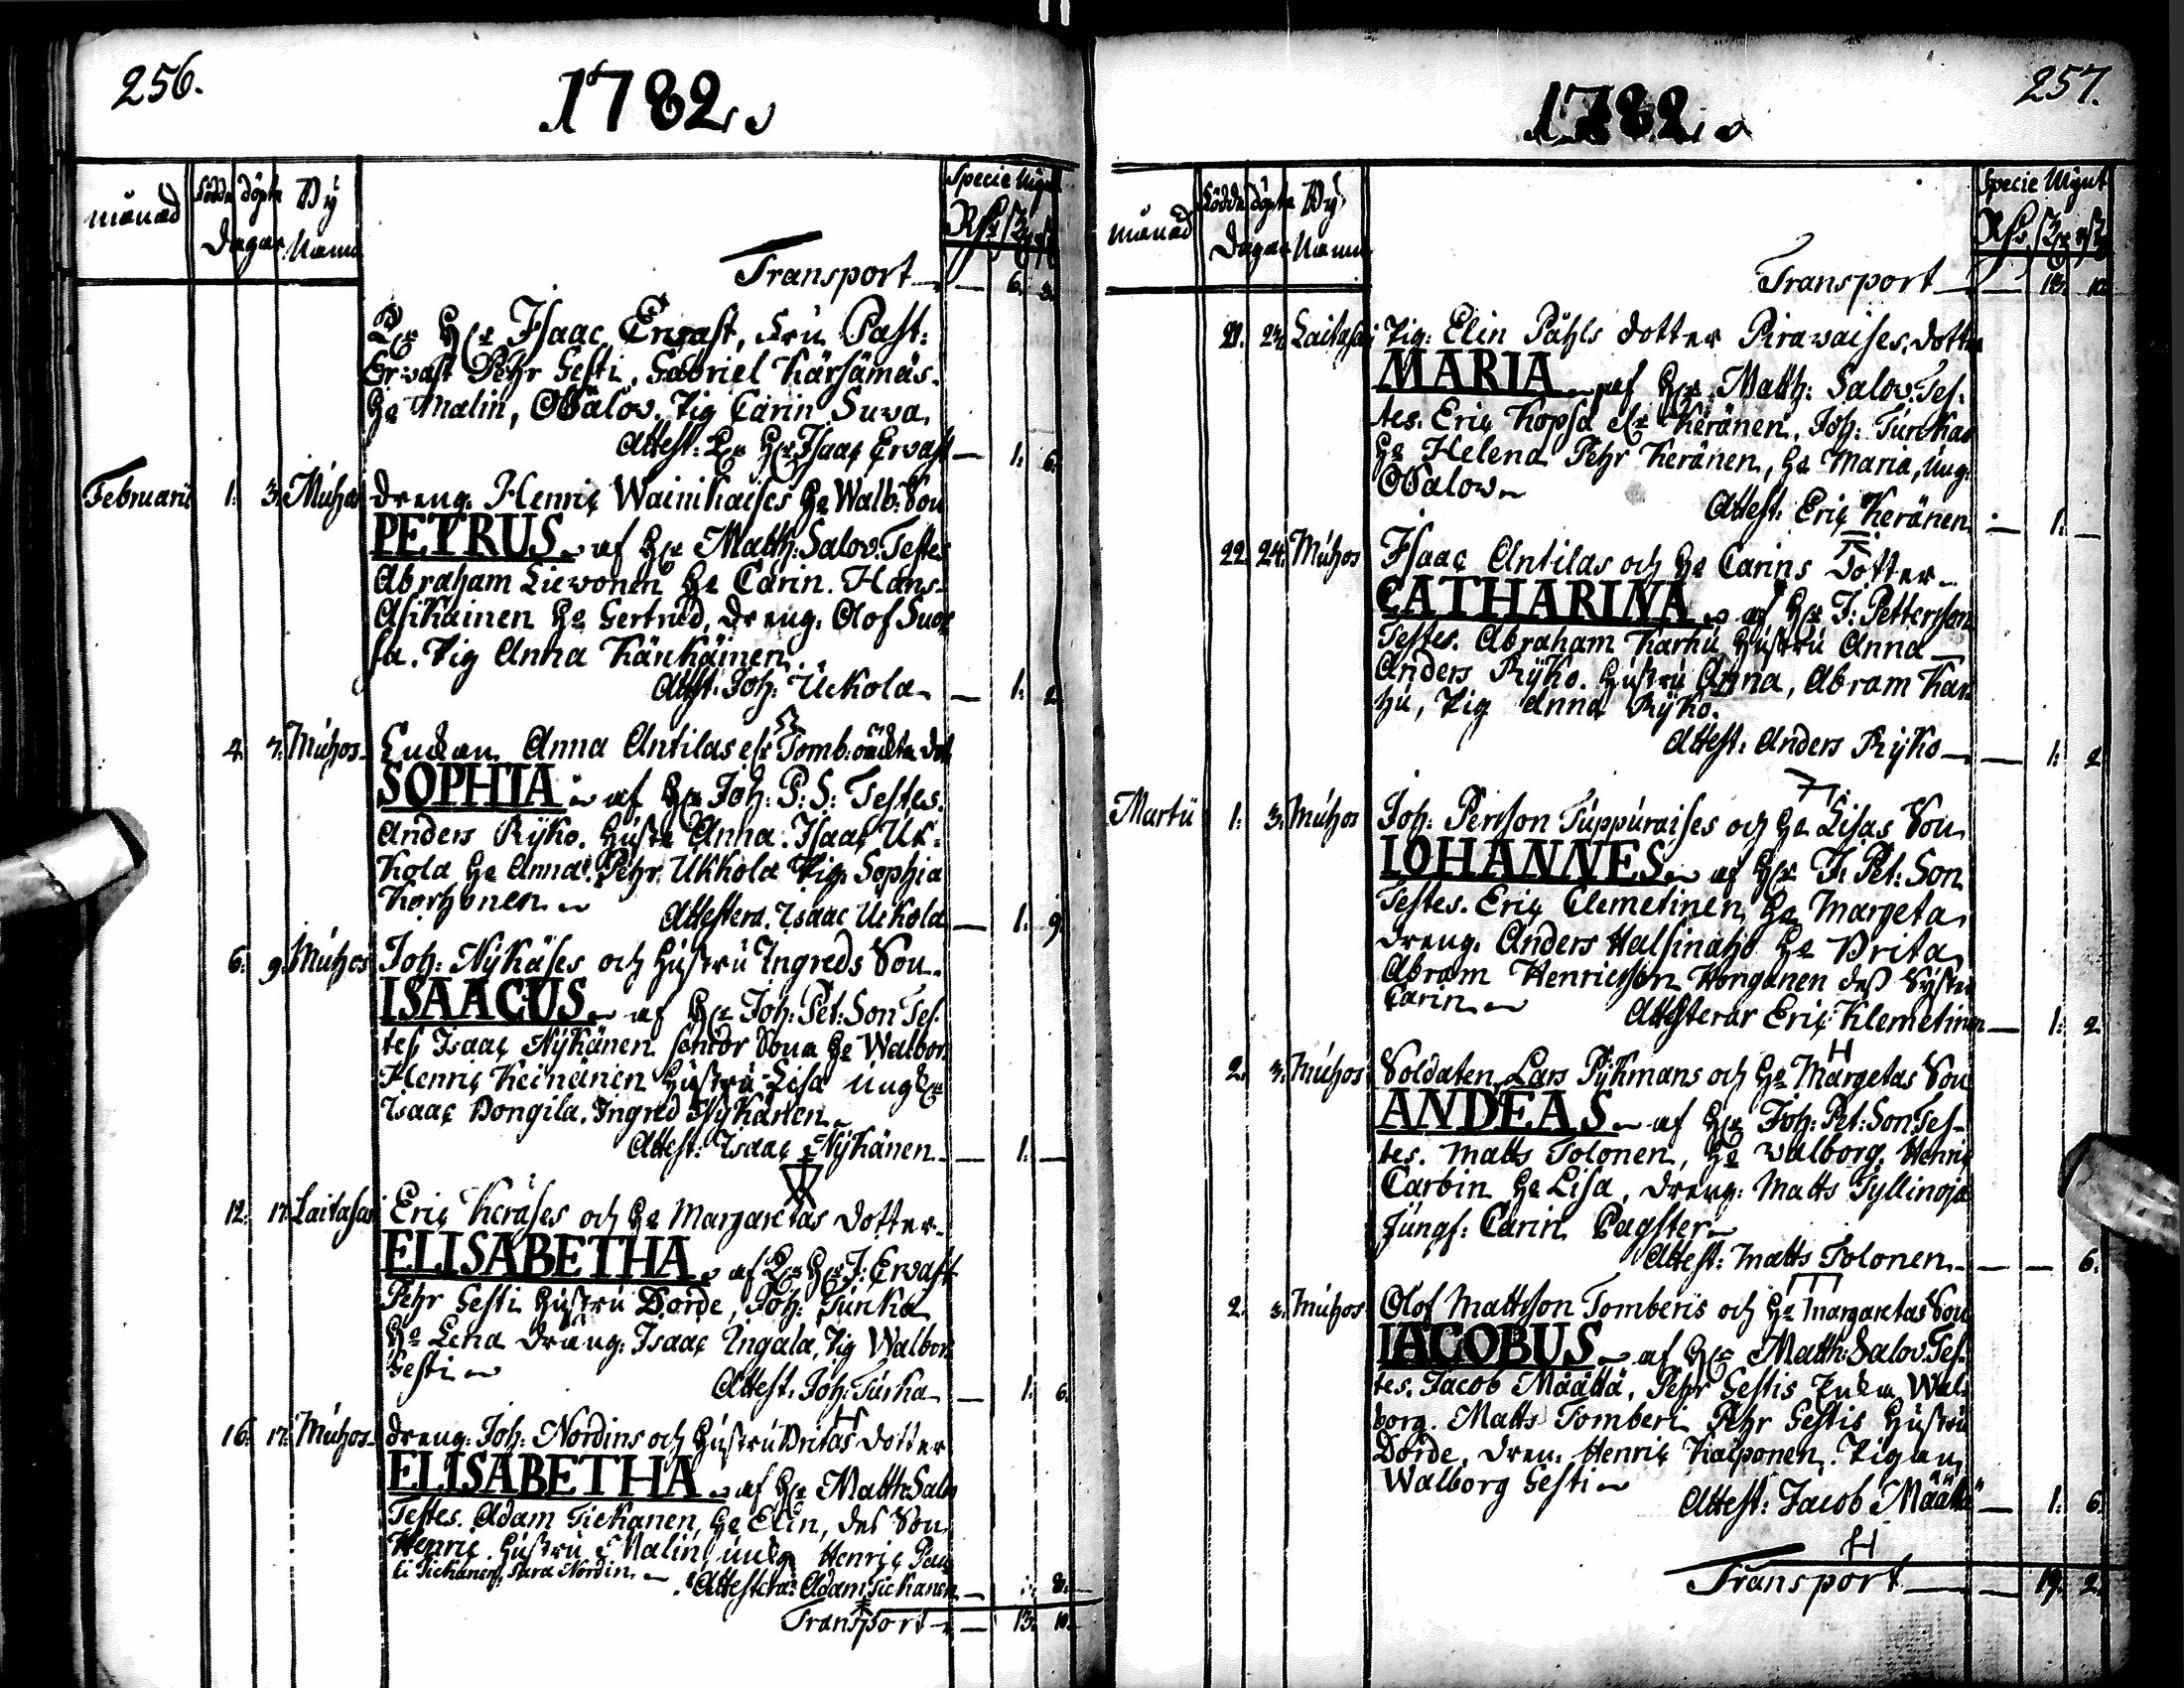 256.
1782.
månad
födde döpte
Dagar
By
Namn
Specie Mynt
Transport — 6. 3.
Isaac Ervast, Fru Past:
Ervast Pehr Gesti, Gabriel Kärsämäs
Hu Malin, OSalov. Pig Carin Suwa.
Attest: Isaac Ervast — 1. 6.
Februarii 1. 3. Muhos dreng. Henric Wainikaises Hu Walb: Son
PETRUS af Hr Matth: Salov. Testes
Abraham Liewonen Hu Carin. Hans
Asikainen Hu Gertrud, dreng. Olof Suor
sa. Pig Anna Känkäinen.
Attest: Joh: Uckola — 1. 2.
4. 7. Muhos Enckan Anna Antilas Tomb: oäckta dot
SOPHIA af Hr Joh: P: S: Testes.
Anders Ryko. Hustr Anna. Isaac Uk-
kola Hu Anna. Pehr Ukkola Pig. Sophia
Korhonen
Attestera. Isaac Uckola — 1. 9.
6. 9. Muhos Joh: Nykäses och hustru Ingreds Son.
ISAACUS af Hr Joh: Pet: Son Tes
tes Isaac Nykänen Hu Walbor
Henric Keinänen Hustru Lisa
Isaac Bongila. Ingrid Nykänen
Attest: Isaac Nykänen — 1. —
12. 17. Laitasari Eric Keräses och Hu Margaretas dotter
ELISABETHA af J: Ervast
Pehr Gesti Hustru Dorde, Joh: Turka
Hu Lena dräng: Isaac Ingala, Pig Walbor
Gesti
Attest. Joh: Turka — 1. 6.
16. 17. Muhos dreng: Joh: Nordins och Hustru Britas dotter
ELISABETHA af Hr Matth: Salo
Testes. Adam Tickanen, Hu Elin, des Son
Henric. Hustru Malin, Henric
Tickanen, Sara Nordin.
Attestera: Adam Tickanen — 8.
Transport — 13. 10.
257.
1782.
månad
födde döpte
Dagar
By
Namn
Specie Mynt
Transport — 13. 10.
21. 23. Laitasari Pig: Elin Påhls dotter Pirawaises. dotter
MARIA af Hr Matth: Salov. Tes-
tes. Eric Kopsa Keränen, Joh: Turcka
Hu Helena Pehr Keränen, Hu Maria, ung.
OSalov
Attest: Eric Keränen — 1. —
22. 24. Muhos Isaac Antilas och Hu Carins Dotter
CATHARINA af Hr J: Pettersson
Testes. Abraham Karhu Hustru Anna
Anders Ryko. Hustru Anna, Abram Kar
hu, Pig Anna Ryko.
Attest: Anders Ryko — 1. 2
Martii 1. 3. Muhos Joh: Persson Tuppuraises och Hu Lisas Son
IOHANNES af Hr J: Pet: Son
Testes. Eric Clemetinen Hu Margeta
dreng. Anders Halsinaho Hu Brita
Abram Henricsson Honganen dess Syster
Carin
Attesterar Eric Klemetinen — 1. 2.
2. 3. Muhos Soldaten Lars Pykmans och Hu Margetas Son
ANDEAS af Hr Joh: Pet: Son. Tes-
tes. Matts Tolonen, Hu Walborg. Henric
Carbin Hu Lisa, dreng: Matts Tyllinoja
Jungf: Carin Pagster
Attest: Matts Tolonen — — 6.
2. 3. Muhos Olof Mattsson Tomberis och Hu Margaretas Son
IACOBUS af Hr Matth: Salov. Tes
tes. Jacob Määttä, Pehr Gestis Wal-
borg. Matts Tomberi Pehr Gestis Hustru
Dorde, dren. Henric Kalponen. Pigan
Walborg Gesti
Attest: Jacob Määttä — 1. 6.
Transport — 19. 2.